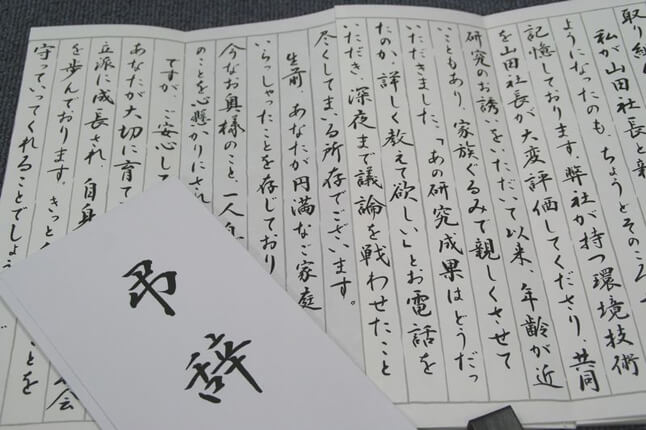 取り組
私が山田社長と親
ようになったのも、ちょうどそのころ
記憶しております。弊社が持つ環境技術
を山田社長が大変評価してくださり、共同
研究のお誘いをいただいて以来、年齢が近
いこともあり、家族ぐるみで親しくさせて
いただきました。「あの研究成果はどうだっ
たのか、詳しく教えて欲しい」とお電話を
いただき、深夜まで議論を戦わせたこと
尽くしてまいる所存でございます。
生前、あなたが円満なご家庭
いらっしゃったことを存じており
今なお奥様のこと、一人
のことを心懸かりにされ
ですが、ご安心して
あなたが大切に育て
立派に成長され、自身 会
を歩んでおります。きっと ことを
守っていってくれることでしょう
弔辞